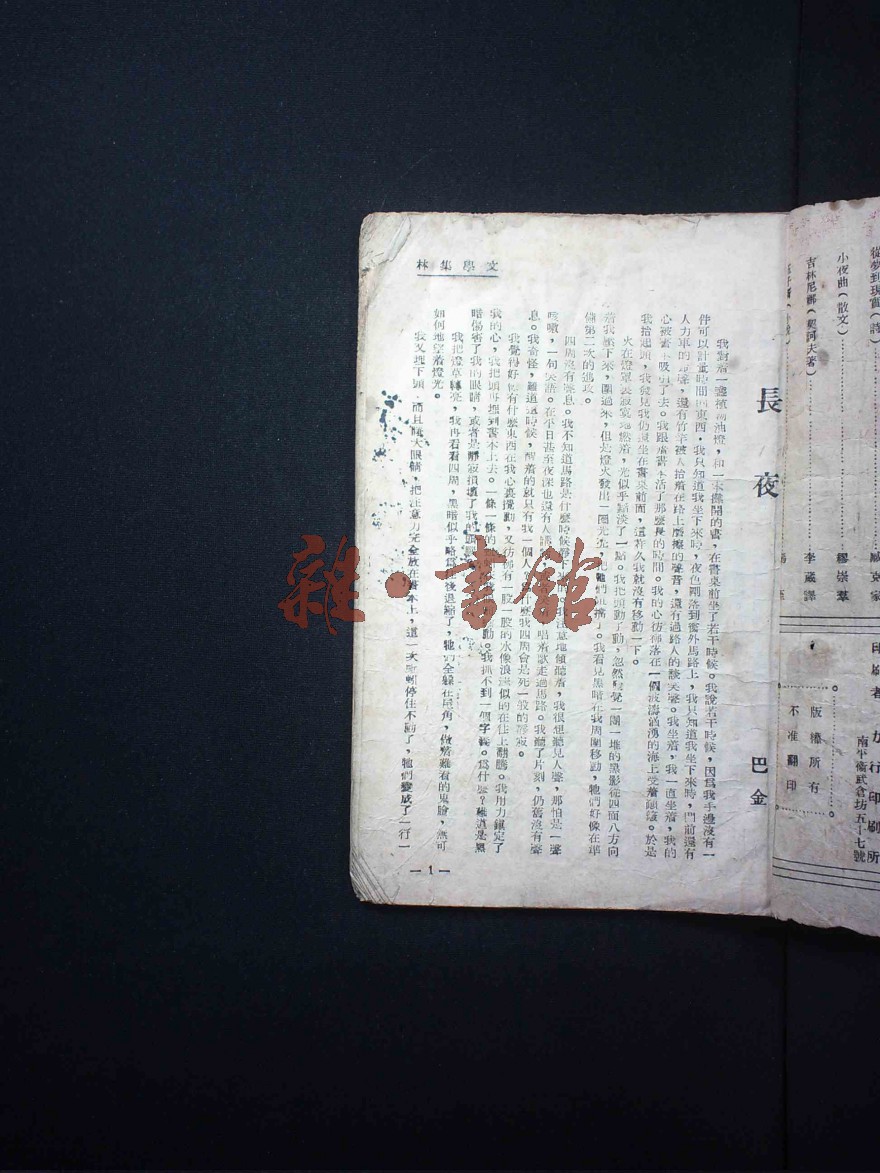 從夢到現實（詩）………………臧克家
小夜曲（散文）………………繆崇羣
（契訶夫著）………………李葳譯
印刷者 力行印刷所
南平衛武倉坊五十七號
版權所有
不准翻印
長夜
巴金
我對着一盞植物油燈，和一本攤開的書，在書桌前坐了若干時候。我說若干時候，因爲我手邊沒有一
件可以計算時間的東西。我只知道我坐下來時，夜色剛落到窗外馬路上，我只知道我坐下來時，門前還有
人力車的鈴聲，還有竹竿被人拾着在路上磨擦的聲音，還有過路人的談笑聲。我坐着，我一直坐着，我的
心被書本吸引了去。我跟着書本活了那麼長的時間。我的心彷彿落在一個波濤洶湧的海上受着顛簸。於是
我抬起頭，我發見我仍舊坐在書桌前面，這許久我就沒有移動一下。
火在燈罩裏寂寞地燃着，光似乎黯淡了一點。我把頭動了動，忽然覺一團一堆的黑影從四面八方向
着我壓下來，圍過來，但是燈火發出一圈光芒，把牠們阻擋了。我看見黑暗在我周圍移動，牠們好像在準
備第二次的進攻。
四周沒有聲息。我不知道馬路是什麼時候靜下的，我注意地傾聽着，我很想聽見人聲，那怕是一聲
咳嗽，一句笑語。在平日甚至夜深也還有人 唱着歌走過馬路。我聽了片刻，仍舊沒有聲
息。我奇怪，難道這時候，醒着的就只有我一個人？爲什麼我四周會是死一般的靜寂。
我覺得好像有什麼東西在我心裏攪動，又彷彿有一股一股的水像浪濤似的在往上翻騰。我用力鎮定了
我的心，我把頭再埋到書本上去。一條一條的 動。我抓不到一個字義。爲什麼？難道是黑
暗傷害了我的眼睛，或者是靜寂損壞了我的頭腦？
我把燈草轉亮，我再看看四周，黑暗似乎略爲往後退縮了，牠們全躲在屋角，做着難看的鬼臉，無可
如何地望着燈光。
我又埋下頭，而且睜大眼睛，把注意力完全放在書本上，這一次 停住不動了，牠們變成了一行一
文學集林
—1—
雜·書館